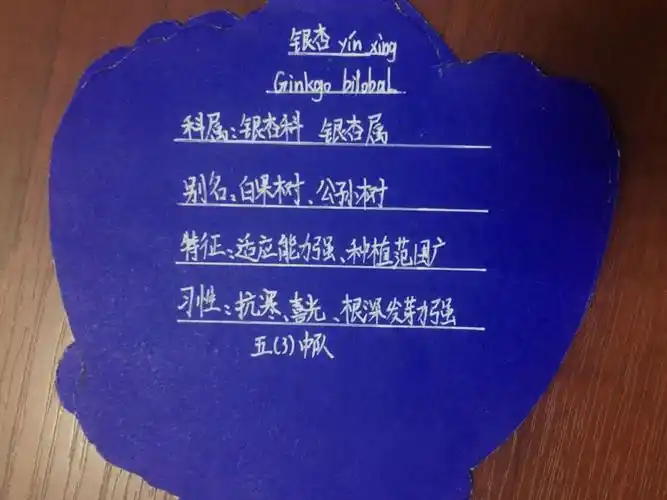 银杏 yín xìng
Ginkgo bilobal
科属:银杏科 银杏属
别名:白果树、公孙树
特征:适应能力强、种植范围广
习性:抗寒、喜光、根深发芽力强
五(3)中队